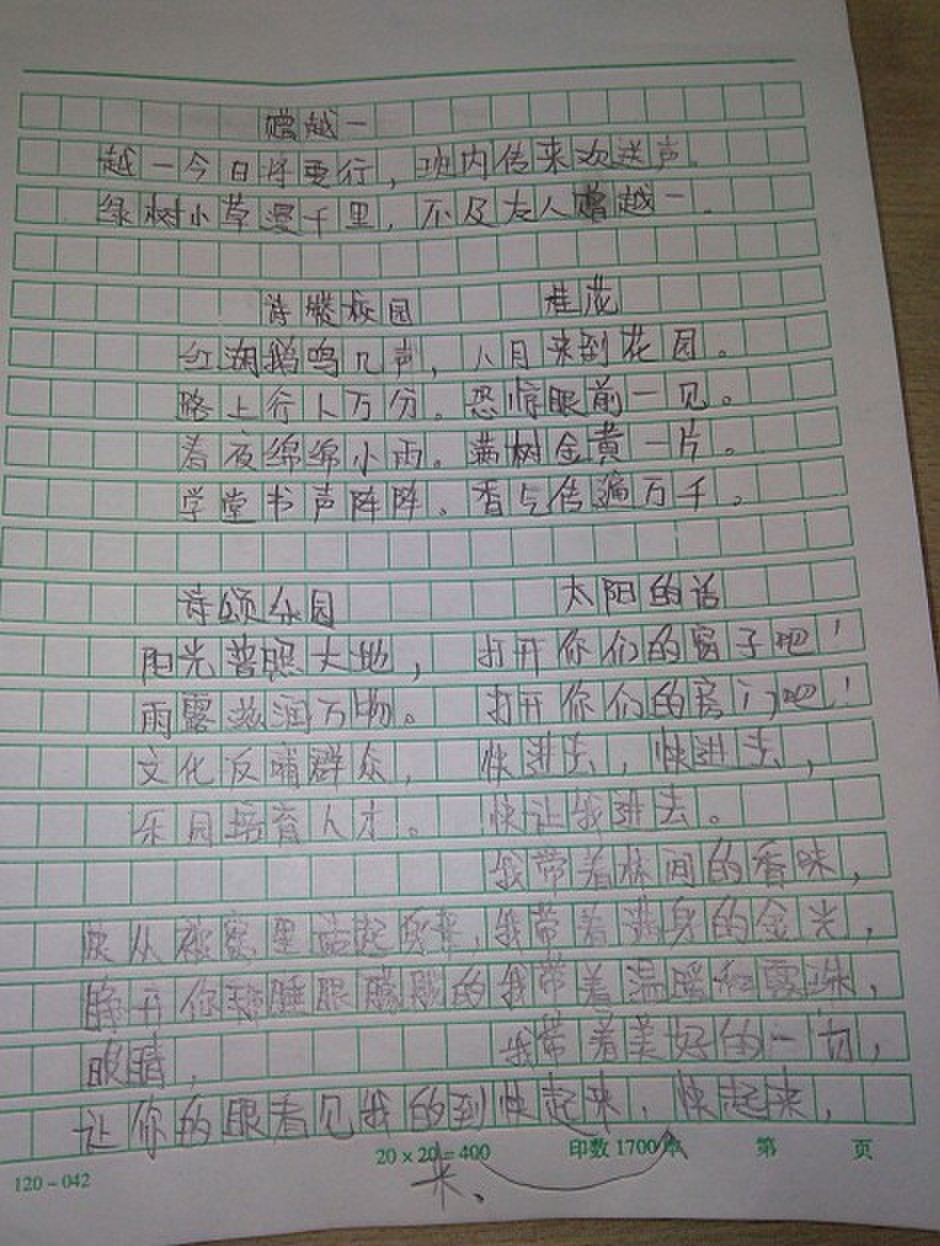 赠越一
越一今日将要行，坝内传来欢送声。
绿树小草漫千里，不及友人赠越一。
诗赞校园 桂花
红湖鹅鸣几声，八月来到花园。
路上行人万分。恐惊眼前一见。
春夜绵绵小雨。满树金黄一片。
学堂书声阵阵。香气传遍万千。
诗颂乐园 太阳的话
阳光普照大地， 打开你们的窗子吧！
雨露滋润万物。 打开你们的房门吧！
文化反哺群众， 快进去，快进去，
乐园培育人才。 快让我进去。
我带着林间的香味，
快从被窝里站起身来，我带着满身的金光，
睁开你那睡眼朦胧的 我带着温暖和露珠，
眼睛， 我带着美好的一切，
让你的眼看见我的到 快起来，快起来，
来、
20×20=400 印数1700本 第 页
120-042